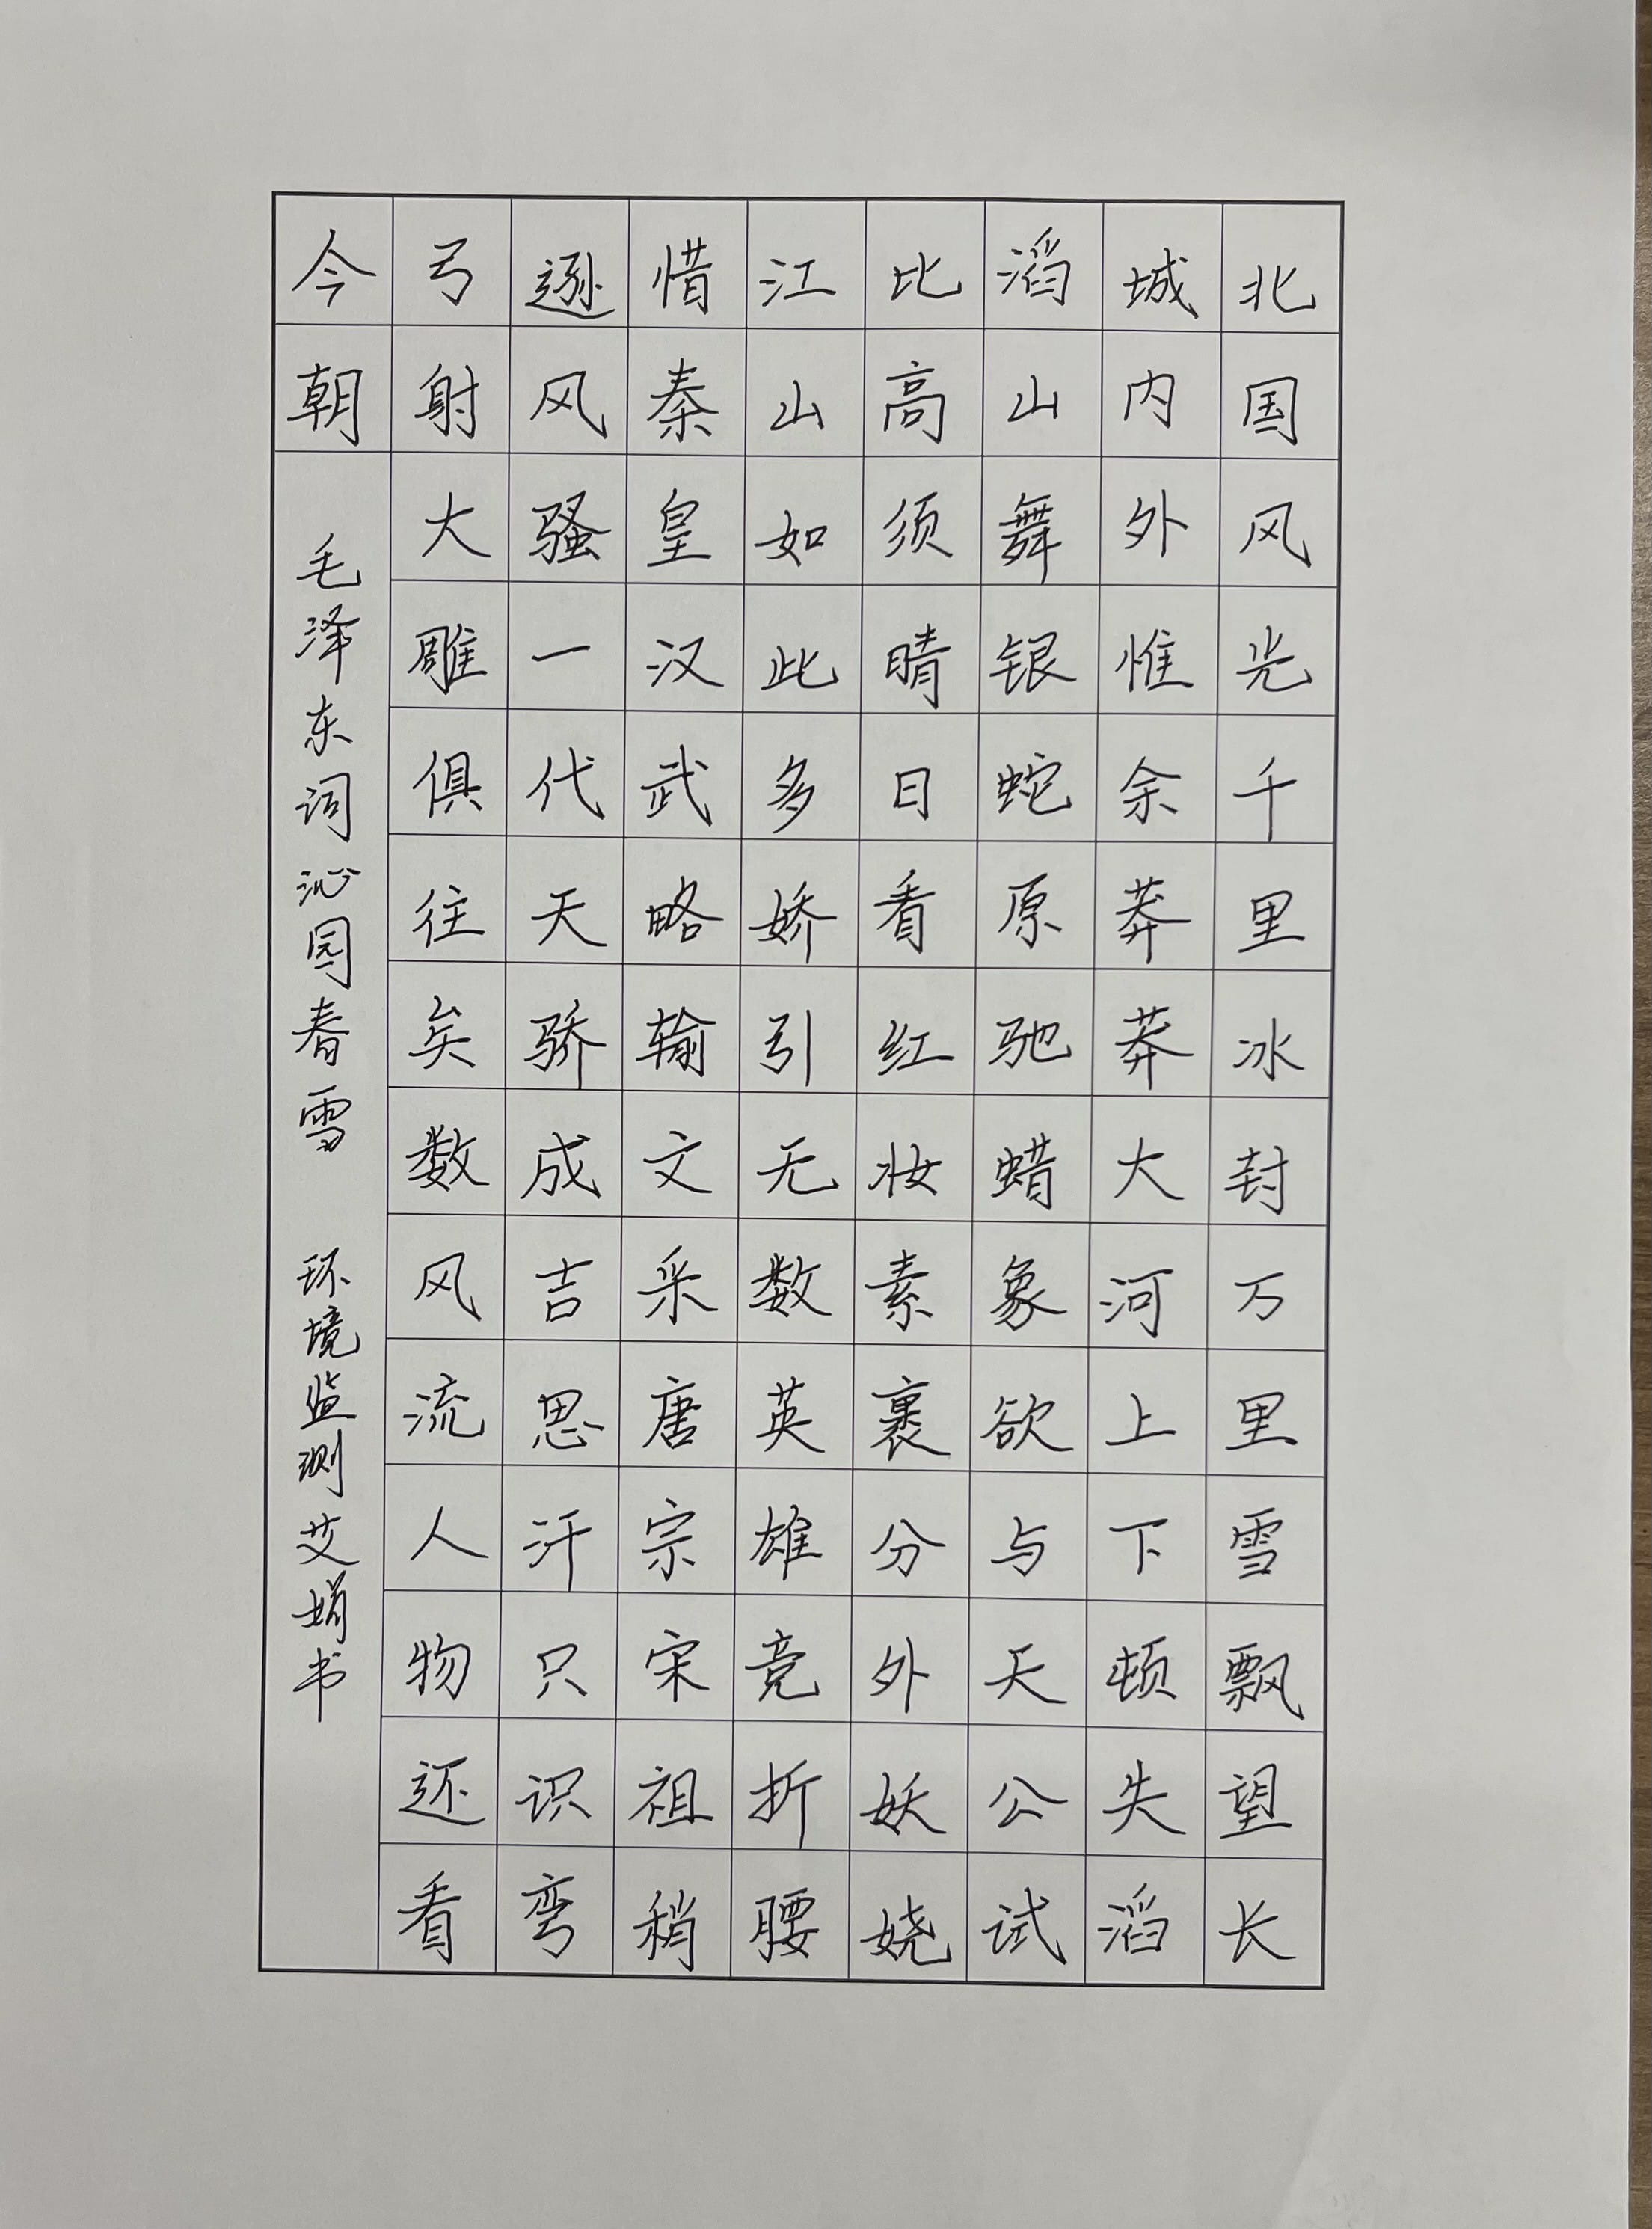 北国风光千里冰封万里雪飘望长
城内外惟余莽莽大河上下顿失滔
滔山舞银蛇原驰蜡象欲与天公试
比高须晴日看红妆素裹分外妖娆
江山如此多娇引无数英雄竞折腰
惜秦皇汉武略输文采唐宗宋祖稍
逊风骚一代天骄成吉思汗只识弯
弓射大雕俱往矣数风流人物还看
今朝
毛泽东词沁园春雪 环境监测艾娟书